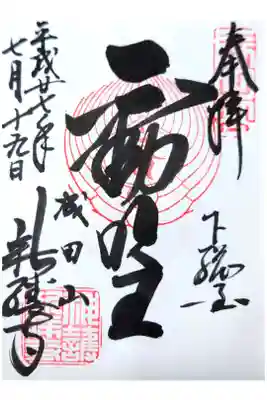 奉拝
下総国
不動明王
成田山
新勝寺
平成廿七年
七月十九日